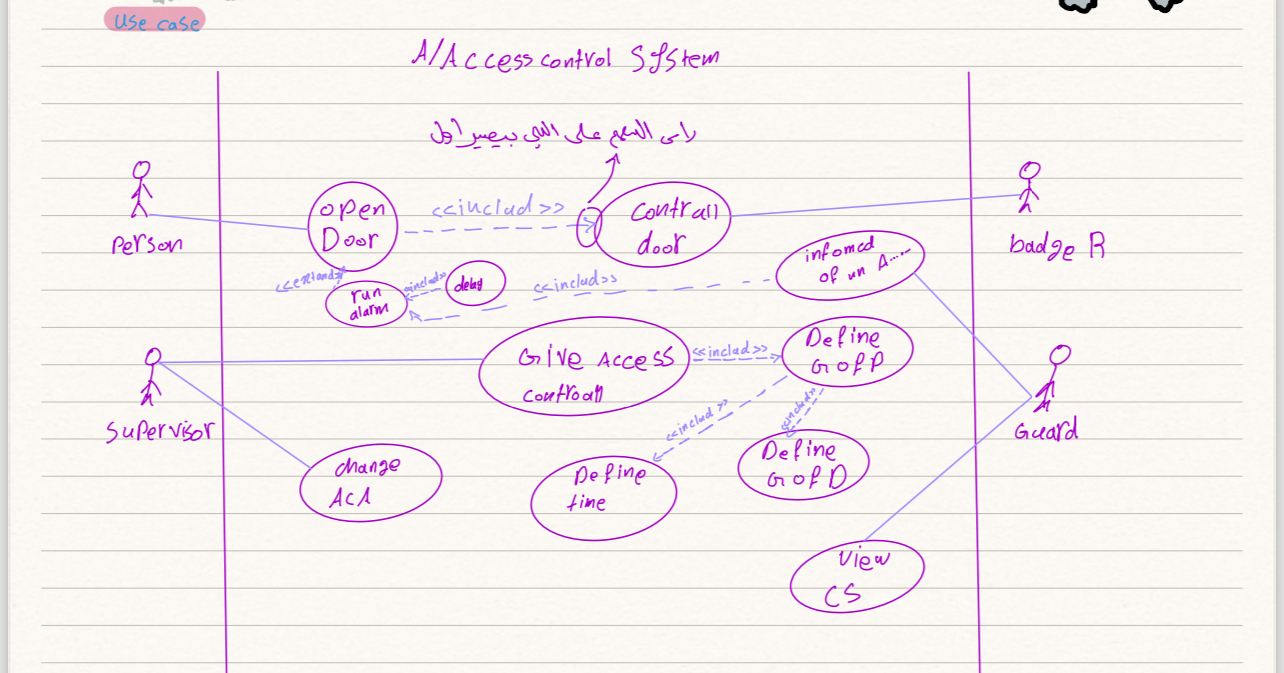 Use case
A/Access control System
راعى السهم على اللي بيصير اول
open
Door
<<includ>>
Contrall
door
Person
badge R
<<extand>>
run
alarm
<<includ>>
delay
<<includ>>
infomed
of un A.....
Give Access
controall
<<includ>>
Define
G of P
Supervisor
Guard
<<includ>>
<<includ>>
change
ACA
Define
time
Define
G of D
View
CS